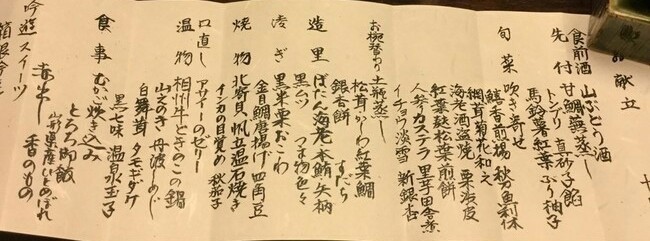 お献立
食前酒 山ぶどう酒
先付 甘鯛蕪蒸し
トンブリ 真砂子餡
馬鈴薯紅葉 ふり柚子
旬菜 吹き寄せ
鱚香煎揚 秋刀魚利休
網茸菊花和え
海老酒盗焼 栗渋皮
紅葉麩松葉煎餅
人参カステラ 里芋田舎煮
イチョウ淡雪 新銀杏
お椀替わり 土瓶蒸し
松茸かしわ紅葉鯛
銀杏餅 すだち
造里 ぼたん海老 本鮪 矢柄
黒ムツ つま物色々
凌ぎ 黒米栗おこわ
金目鯛唐揚げ 四角豆
焼物 北寄貝 帆立温石焼き
インカの目覚め 秋茄子
口直し アサイーのゼリー
温物 相州牛ときのこの鍋
山えのき 丹波しめじ
白舞茸 タモギダケ
黒七味 温泉玉子
食事 むかご炊き込み
とろろ御飯
山形県産ひとめぼれ
赤出し 香のもの
吟遊スイーツ